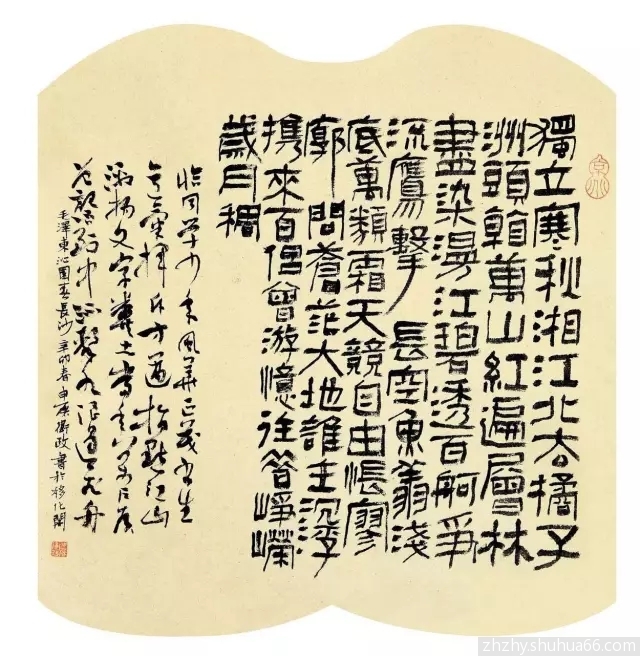 獨立寒秋湘江北去橘子
洲頭看萬山紅遍層林
盡染漫江碧透百舸爭
流鷹擊長空魚翔淺
底萬類霜天競自由悵寥
廓問蒼茫大地誰主沉浮
携來百侶曾游憶往昔崢嶸
歲月稠
恰同学少年風華正茂書生
意氣揮斥方遒指點江山
激揚文字糞土當年萬户侯
曾記否到中流擊水浪遏飛舟
毛澤東沁園春長沙辛卯春書於
zhzhy.shuhua66.com